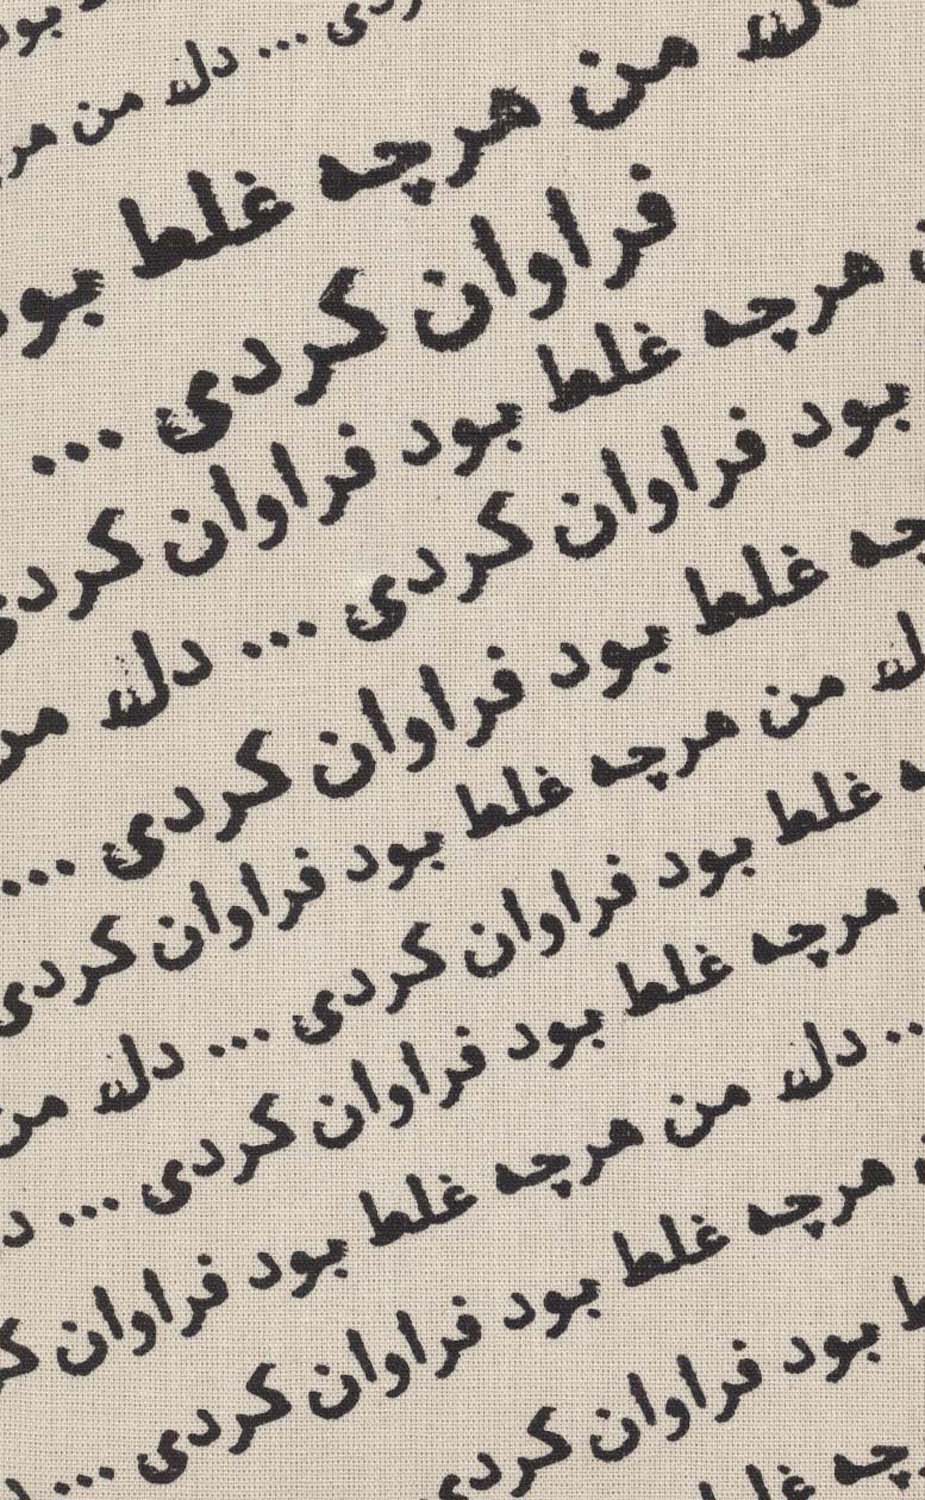 بود
ردی ... دل من هر
دل من هرچه غلط بود
فراوان کردی ...
هرچه غلط بود فراوان کردی
بود فراوان کردی ... دل من
چه غلط بود فراوان کردی ...
دل من هرچه غلط بود فراوان کردی
ه غلط بود فراوان کردی ... دل من
هرچه غلط بود فراوان کردی ... د
.. دل من هرچه غلط بود فراوان ک
هرچه غلط بود فراوان کردی ...
ط بود فراوان کردی
چه غلط